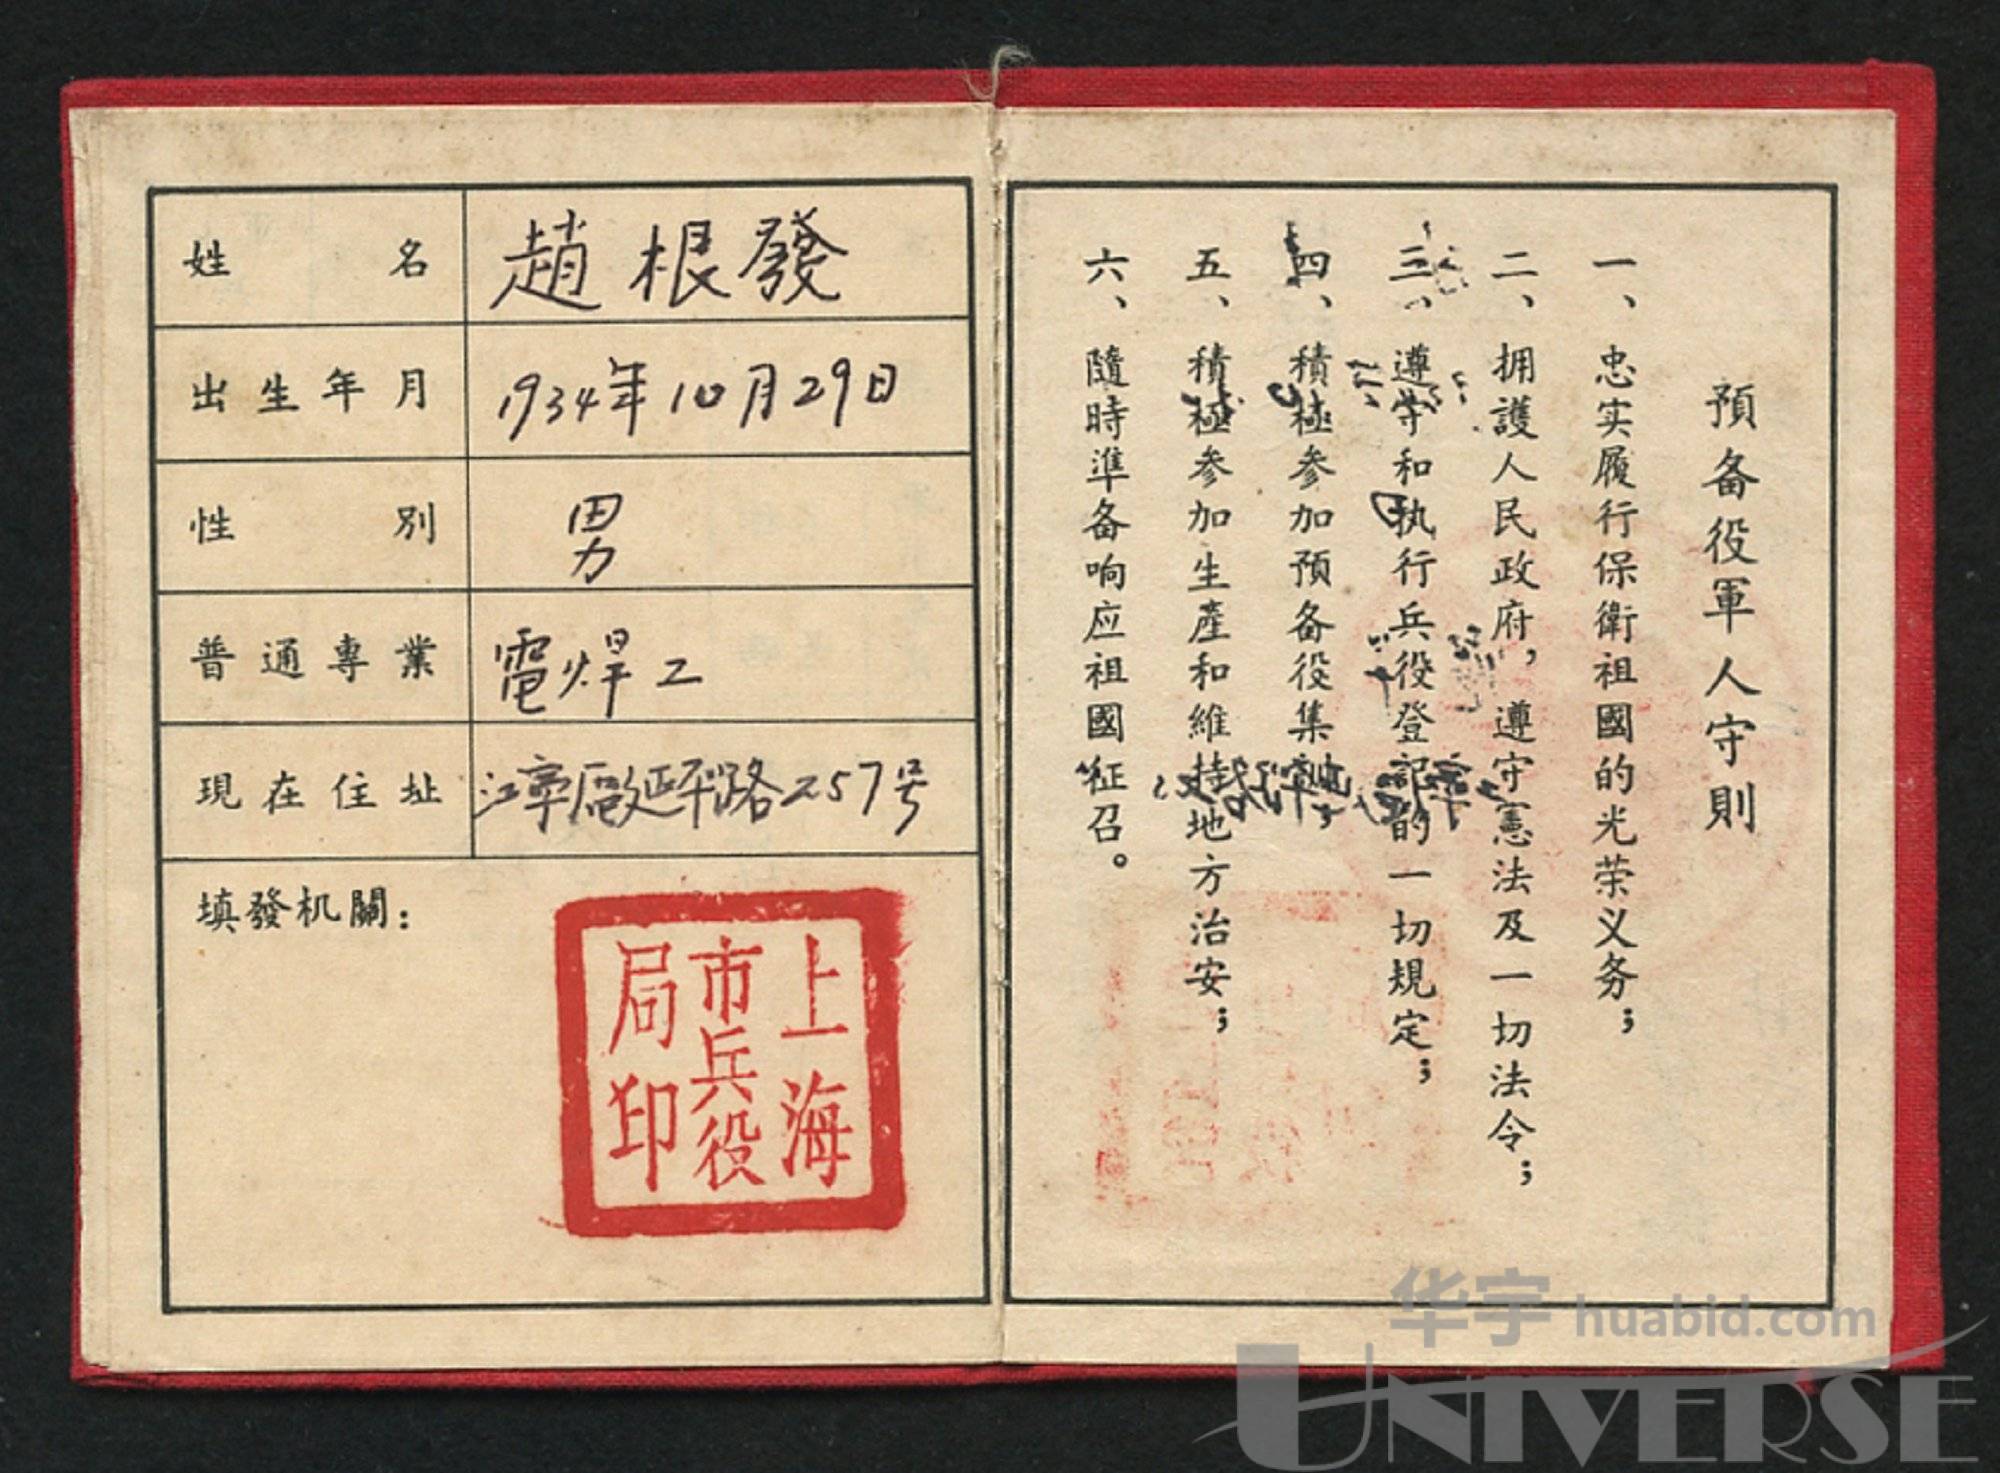 姓名 趙根發
出生年月 1934年10月29日
性別 男
普通專業 電焊工
現在住址 江寧區延平路257号
填發机關：
上海
市兵役
局印
預备役軍人守則
一、忠实履行保衛祖國的光荣义务；
二、拥護人民政府，遵守憲法及一切法令；
三、遵守和执行兵役登記的一切規定；
四、積極参加預备役集訓；
五、積極参加生產和維持地方治安；
六、隨時準备响应祖國征召。
华宇 huabid.com
UNIVERSE